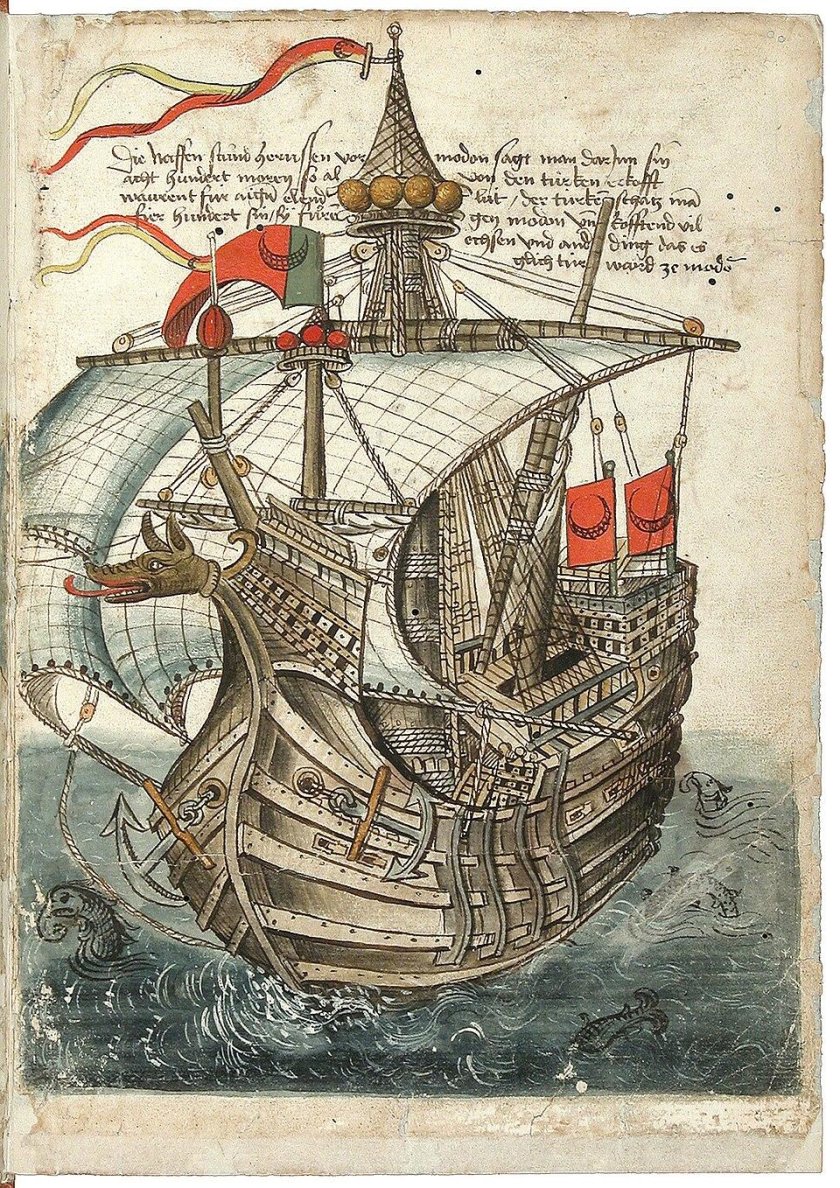 Die Naffen stund herussen vor modon sagt man dar Inn sin
acht hundert moren so al von den türken erkofft
warent für aigen lüt / der türken schatz man
fier hundert sin sy fure gen modon und kofftend vil
ochsen und and ding das es
glich tür ward ze modon